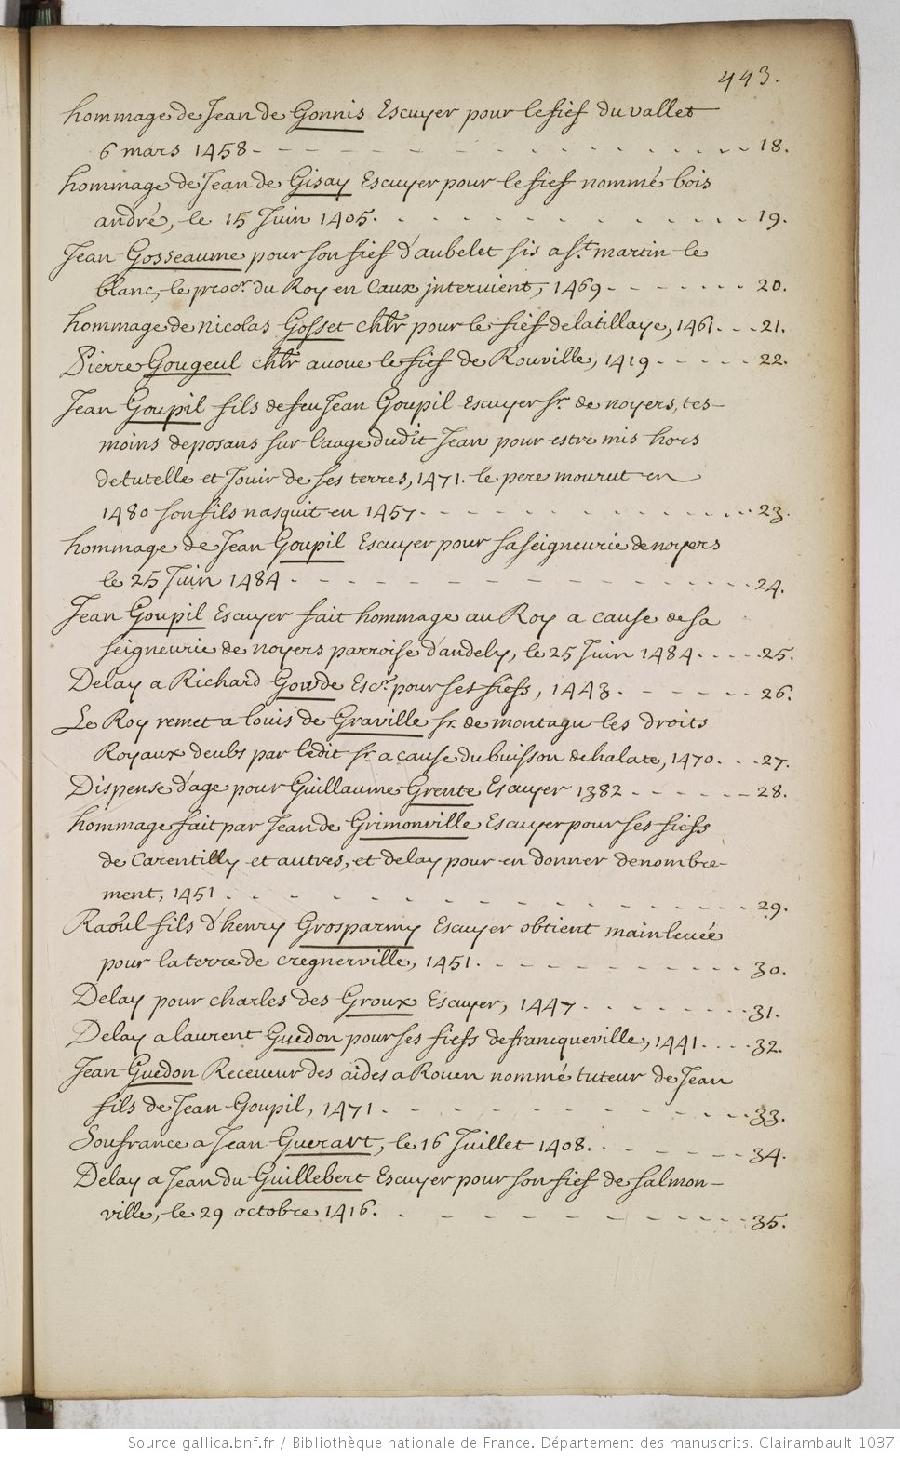 443.
hommage de Jean de Gonnis Escuyer pour le fief du vallet
6 mars 1458 - - - - - - - - - - - 18.
hommage de Jean de Gisay Escuyer pour le fief nommé bois
andré, le 15 Juin 1405. - - - - - - - - 19.
Jean Gosseaume pour son fief d'aubelet sis a St. martin le
blanc, le procr. du Roy en Caux intervient, 1469 - - - - - - - 20.
hommage de nicolas Gosset chlr pour le fief de latillaye, 1461. - - 21.
Pierre Gougeul chlr avoue le fief de Rouville, 1419 - - - - - 22.
Jean Goupil fils de feu Jean Goupil Escuyer sr. de noyers, tes-
moins deposans sur laage dudit Jean pour estre mis hors
de tutelle et Jouir de ses terres, 1471. le pere mourut en
1480 son fils nasquit en 1457. - - - - - - - - - 23.
hommage de Jean Goupil Escuyer pour sa seigneurie de noyers
le 25 Juin 1484 - - - - - - - - - - 24.
Jean Goupil Escuyer fait hommage au Roy a cause de sa
seigneurie de noyers parroise d'andely, le 25 Juin 1484. - - - 25.
Delay a Richard Gowde Escr. pour ses fiefs, 1443. - - - - - 26.
Le Roy remet a louis de Graville sr. de montagu les droits
Royaux deubs par ledit sr. a cause du buisson de halate, 1470. - - 27.
Dispense d'age pour Guillaume Grente Escuyer 1382 - - - - - - 28.
hommage fait par Jean de Grimonville Escuyer pour ses fiefs
de Carentilly et autres, et delay pour en donner denombre-
ment, 1451 . - - - - - - - - - - - 29.
Raoul fils d'henry Grosparmy Escuyer obtient mainlevée
pour la terre de cregnerville, 1451. - - - - - - - - 30.
Delay pour charles des Groux Escuyer, 1447 - - - - - - 31.
Delay a laurent Guedon pour ses fiefs de francqueville, 1441. - - - 32.
Jean Guedon Receveur des aides a Rouen nommé tuteur de Jean
fils de Jean Goupil, 1471 - - - - - - - - - - 33.
Soufrance a Jean Guerart, le 16 Juillet 1408. - - - - - 34.
Delay a Jean du Guillebert Escuyer pour son fief de salmon-
ville, le 29 octobre 1416. - - - - - - - - - 35.
Source gallica.bnf.fr / Bibliothèque nationale de France. Département des manuscrits. Clairambault 1037